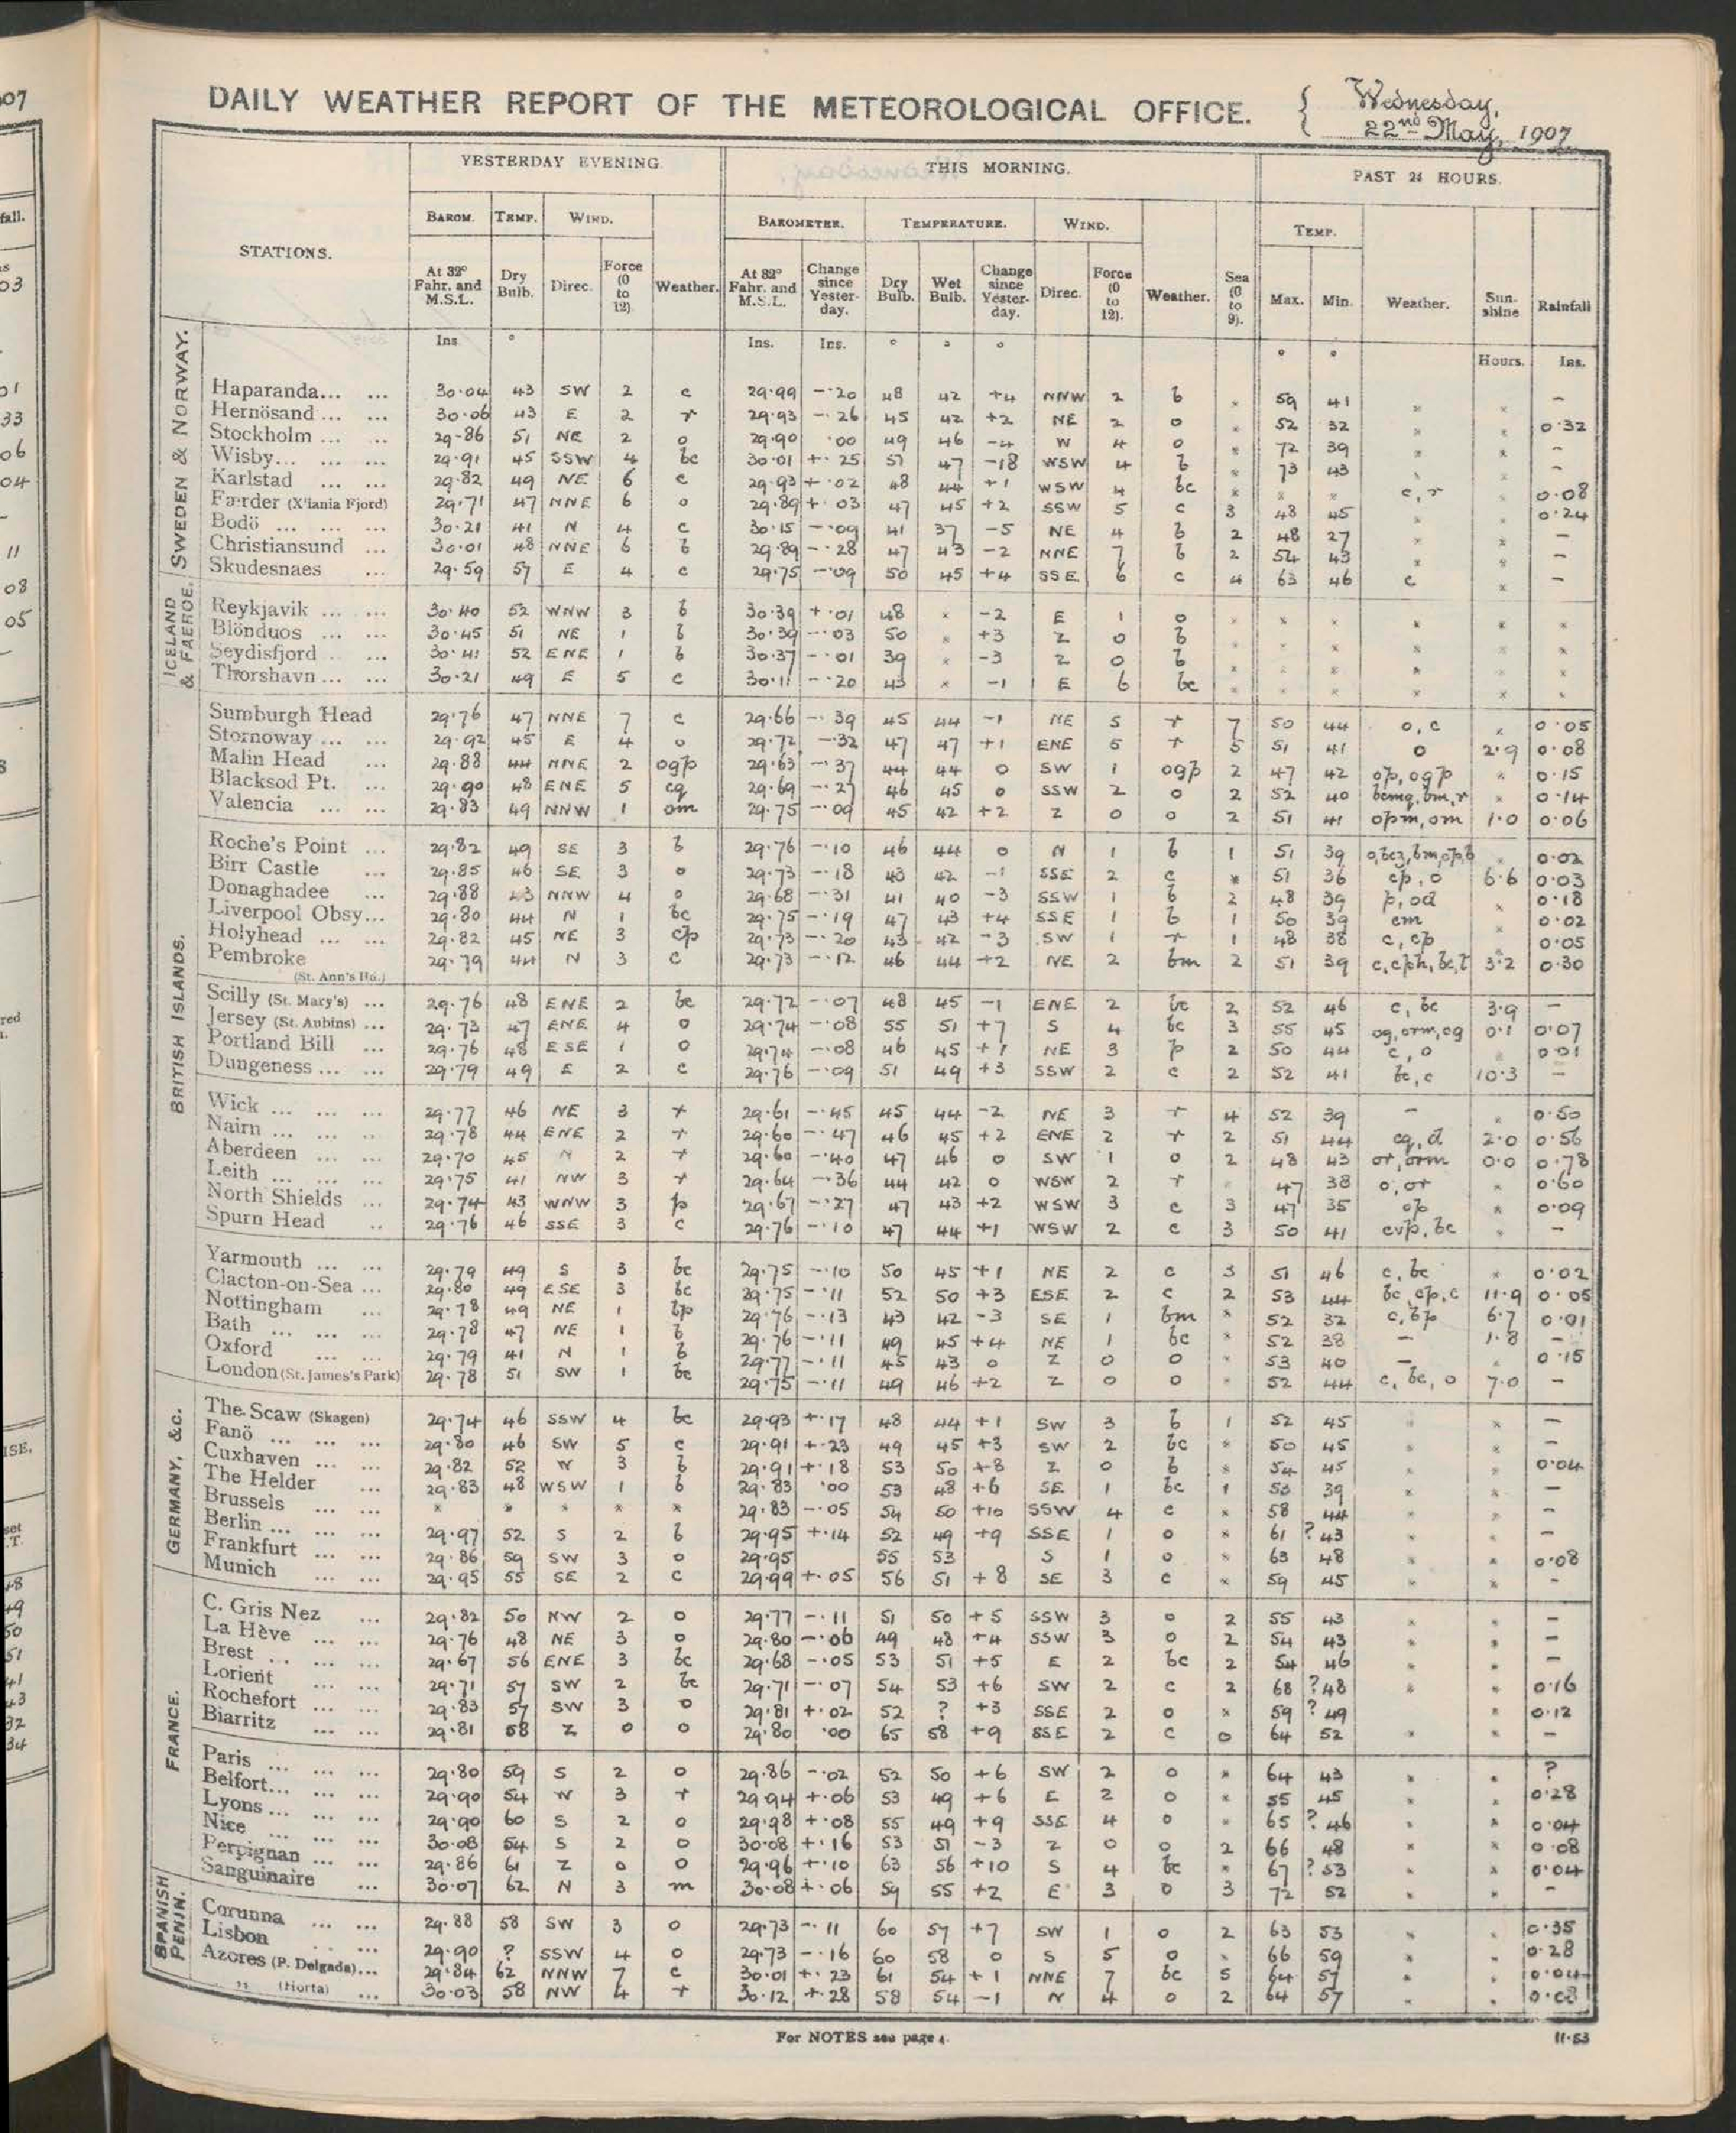 DAILY WEATHER REPORT OF THE METEOROLOGICAL OFFICE. { Wednesday,
22nd May, 1907
YESTERDAY EVENING. THIS MORNING. PAST 24 HOURS.
STATIONS. BAROM. TEMP. WIND. Weather. BAROMETER. TEMPERATURE. WIND. Weather. Sea (0 to 9). TEMP. Weather. Sunshine Rainfall
At 32° Fahr. and M.S.L. Dry Bulb. Direc. Force (0 to 12). At 32° Fahr. and M.S.L. Change since Yesterday. Dry Bulb. Wet Bulb. Change since Yesterday. Direc. Force (0 to 12). Max. Min.
Ins. ° Ins. Ins. ° ° ° ° ° Hours. Ins.
SWEDEN & NORWAY.
Haparanda... ... 30.04 43 SW 2 c 29.99 -.20 48 42 +4 NNW 2 b × 59 41 × × -
Hernösand ... ... 30.06 43 E 2 r 29.93 -.26 45 42 +2 NE 2 o × 52 32 × × 0.32
Stockholm ... ... 29.86 51 NE 2 o 29.90 .00 49 46 -4 W 4 o × 72 39 × × -
Wisby... ... ... 29.91 45 SSW 4 bc 30.01 +.25 51 47 -18 WSW 4 b × 73 43 × × -
Karlstad ... ... 29.82 49 NE 6 c 29.93 +.02 48 44 +1 WSW 4 bc × × × c, r × 0.08
Færder (X'iania Fjord) 29.71 47 NNE 6 o 29.89 +.03 47 45 +2 SSW 5 c 3 48 45 × × 0.24
Bodö ... ... ... 30.21 41 N 4 c 30.15 -.09 41 37 -5 NE 4 b 2 48 27 × × -
Christiansund ... 30.01 48 NNE 6 b 29.89 -.28 47 43 -2 NNE 7 b 2 54 43 × × -
Skudesnaes ... 29.59 57 E 4 c 29.75 -.09 50 45 +4 SSE 6 c 4 63 46 c × -
ICELAND & FAEROE.
Reykjavik ... ... 30.40 52 WNW 3 b 30.39 +.01 48 × -2 E 1 o × × × × × ×
Blönduos ... ... 30.45 51 NE 1 b 30.39 -.03 50 × +3 Z 0 b × × × × × ×
Seydisfjord ... ... 30.41 52 ENE 1 b 30.37 -.01 39 × -3 Z 0 b × × × × × ×
Thorshavn ... ... 30.21 49 E 5 c 30.11 -.20 43 × -1 E 6 bc × × × × × ×
BRITISH ISLANDS.
Sumburgh Head 29.76 47 NNE 7 c 29.66 -.39 45 44 -1 NE 5 r 7 50 44 o, c × 0.05
Stornoway ... ... 29.92 45 E 4 o 29.72 -.32 47 47 +1 ENE 5 r 5 51 41 o 2.9 0.08
Malin Head ... 29.88 44 NNE 2 ogp 29.63 -.37 44 44 0 SW 1 ogp 2 47 42 op, ogp × 0.15
Blacksod Pt. ... 29.90 48 ENE 5 cq 29.69 -.27 46 45 0 SSW 2 o 2 52 40 bcmq, bm, r × 0.14
Valencia ... ... 29.83 49 NNW 1 om 29.75 -.09 45 42 +2 Z 0 o 2 51 41 opm, om 1.0 0.06
Roche's Point ... 29.82 49 SE 3 b 29.76 -.10 46 44 0 N 1 b 1 51 39 × 0.02
Birr Castle ... 29.85 46 SE 3 o 29.73 -.18 43 42 -1 SSE 2 c × 51 36 cp, o 6.6 0.03
Donaghadee ... 29.88 43 NNW 4 o 29.68 -.31 41 40 -3 SSW 1 b 2 48 39 p, od × 0.18
Liverpool Obsy... 29.80 44 N 1 bc 29.75 -.19 47 43 +4 SSE 1 b 1 50 39 cm × 0.02
Holyhead ... ... 29.82 45 NE 3 cp 29.73 -.20 43 42 -3 SW 1 r 1 48 38 c, cp × 0.05
Pembroke (St. Ann's Hd.) 29.79 44 N 3 c 29.73 -.12 46 44 +2 NE 2 bm 2 51 39 c, cph, bc, l 3.2 0.30
Scilly (St. Mary's) ... 29.76 48 ENE 2 bc 29.72 -.07 48 45 -1 ENE 2 bc 2 52 46 c, bc 3.9 -
Jersey (St. Aubins) ... 29.73 47 ENE 4 o 29.74 -.08 55 51 +7 S 4 bc 3 55 45 og, orm, cg 0.1 0.07
Portland Bill ... 29.76 48 ESE 1 o 29.74 -.08 46 45 +1 NE 3 p 2 50 44 c, o × 0.01
Dungeness ... ... 29.79 49 E 2 c 29.76 -.09 51 49 +3 SSW 2 c 2 52 41 bc, c 10.3 -
Wick ... ... ... 29.77 46 NE 3 r 29.61 -.45 45 44 -2 NE 3 r 4 52 39 - × 0.50
Nairn ... ... ... 29.78 44 ENE 2 r 29.60 -.47 46 45 +2 ENE 2 r 2 51 44 cq, d 2.0 0.56
Aberdeen ... ... 29.70 45 N 2 r 29.60 -.40 47 46 0 SW 1 o 2 48 43 or, orm 0.0 0.78
Leith ... ... ... 29.75 41 NW 3 r 29.64 -.36 44 42 0 WSW 2 r × 47 38 o, or × 0.60
North Shields ... 29.74 43 WNW 3 p 29.67 -.27 47 43 +2 WSW 3 c 3 47 35 op × 0.09
Spurn Head .. 29.76 46 SSE 3 c 29.76 -.10 47 44 +1 WSW 2 c 3 50 41 cvp, bc × -
Yarmouth ... ... 29.79 49 S 3 bc 29.75 -.10 50 45 +1 NE 2 c 3 51 46 c, bc × 0.02
Clacton-on-Sea ... 29.80 49 ESE 3 bc 29.75 -.11 52 50 +3 ESE 2 c 2 53 44 bc, cp, c 11.9 0.05
Nottingham ... 29.78 49 NE 1 bp 29.76 -.13 43 42 -3 SE 1 bm × 52 32 c, bp 6.7 0.01
Bath ... ... ... 29.78 47 NE 1 b 29.76 -.11 49 45 +4 NE 1 bc × 52 38 - 1.8 -
Oxford ... ... 29.79 41 N 1 b 29.77 -.11 45 43 0 Z 0 o × 53 40 - × 0.15
London (St. James's Park) 29.78 51 SW 1 bc 29.75 -.11 49 46 +2 Z 0 o × 52 44 c, bc, o 7.0 -
GERMANY, &c.
The Scaw (Skagen) 29.74 46 SSW 4 bc 29.93 +.17 48 44 +1 SW 3 b 1 52 45 × × -
Fanö ... ... ... 29.80 46 SW 5 c 29.91 +.23 49 45 +3 SW 2 bc × 50 45 × × -
Cuxhaven ... ... 29.82 52 W 3 b 29.91 +.18 53 50 +8 Z 0 b × 54 45 × × 0.04
The Helder ... 29.83 48 WSW 1 b 29.83 .00 53 48 +6 SE 1 bc 1 53 39 × × -
Brussels ... ... × × × × × 29.83 -.05 54 50 +10 SSW 4 c × 58 44 × × -
Berlin ... ... ... 29.97 52 S 2 b 29.95 +.14 52 49 +9 SSE 1 o × 61 ? 43 × × -
Frankfurt ... ... 29.86 59 SW 3 o 29.95 55 53 S 1 o × 63 48 × × 0.08
Munich ... ... 29.95 55 SE 2 c 29.99 +.05 56 51 +8 SE 3 c × 59 45 × × -
FRANCE.
C. Gris Nez ... 29.82 50 NW 2 o 29.77 -.11 51 50 +5 SSW 3 o 2 55 43 × × -
La Hève ... ... 29.76 48 NE 3 o 29.80 -.06 49 48 +4 SSW 3 o 2 54 43 × × -
Brest ... ... ... 29.67 56 ENE 3 bc 29.68 -.05 53 51 +5 E 2 bc 2 54 46 × × -
Lorient ... ... 29.71 57 SW 2 bc 29.71 -.07 54 53 +6 SW 2 c 2 68 ? 48 × × 0.16
Rochefort ... ... 29.83 57 SW 3 o 29.81 +.02 52 ? +3 SSE 2 o × 59 ? 49 × 0.12
Biarritz ... ... 29.81 58 Z 0 o 29.80 .00 65 58 +9 SSE 2 c 0 64 52 × × -
Paris ... ... ... 29.80 59 S 2 o 29.86 -.02 52 50 +6 SW 2 o × 64 43 × × ?
Belfort... ... ... 29.90 54 W 3 r 29.94 +.06 53 49 +6 E 2 o × 55 45 × × 0.28
Lyons ... ... ... 29.90 60 S 2 o 29.98 +.08 55 49 +9 SSE 4 o × 65 ? 46 × × 0.04
Nice ... ... ... 30.08 54 S 2 o 30.08 +.16 53 51 -3 Z 0 o 2 66 48 × × 0.08
Perpignan ... ... 29.86 61 Z 0 o 29.96 +.10 63 56 +10 S 4 bc × 67 ? 53 × × 0.04
Sanguinaire ... 30.07 62 N 3 m 30.08 +.06 59 55 +2 E 3 o 3 72 52 × × -
SPANISH PENIN.
Corunna ... ... 29.88 58 SW 3 o 29.73 -.11 60 57 +7 SW 1 o 2 63 53 × × 0.35
Lisbon ... ... 29.90 ? SSW 4 o 29.73 -.16 60 58 0 S 5 o × 66 59 × × 0.28
Azores (P. Delgada)... 29.84 62 NNW 7 c 30.01 +.23 61 54 +1 NNE 7 bc 5 64 57 × × 0.04
" (Horta) ... 30.03 58 NW 4 r 30.12 +.28 58 54 -1 N 4 o 2 64 57 × ×
For NOTES see page 4.
11·53